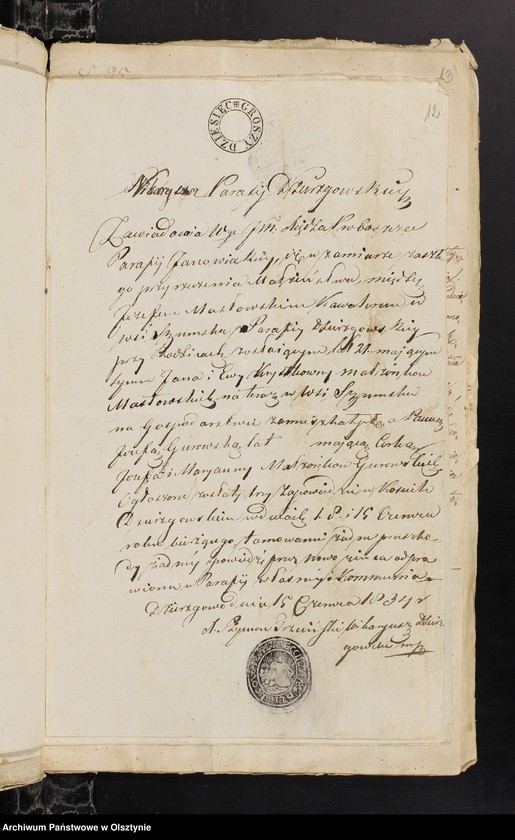 13
12
DZIESIĘC GROSZY
Wikaryusz Parafij Dzierzgowskiey
Zawiadamia Wgo Jm. Xiędza Proboszcza
Parafij Janowieckiey, iż w zamiarze zaszłe
go przyrzeczenia Małżeństwa, między
Józefem Masłowskim Kawalerem
wsi Szumsku Parafij Dzierzgowskiey
przy Rodzicach zostaiącym lat 21 maiącym
synem Jana i Ewy małżonków
Masłowskich, na teraz w wsi Szumsku
na Gospodarstwie zamieszkałych, a Panną
Józefą Gurowską lat maiącą Córką
Józefa i Maryanny Małżonków Gurowskich
Ogłoszone zostały trzy Zapowiedzi w Kościele
Dzierzgowskim w dniach 1 8 i 15 Czerwca
roku bieżącego, tamowania żadne przeszko-
dy żadney spowiedź przez nowożeńca odpra
wiona w Parafij własney i Kommunia
Dzierzgowo dnia 15 Czerwca 1834 r
X. Szymon Wikaryusz Dzierz
gowski mp
Archiwum Państwowe w Olsztynie